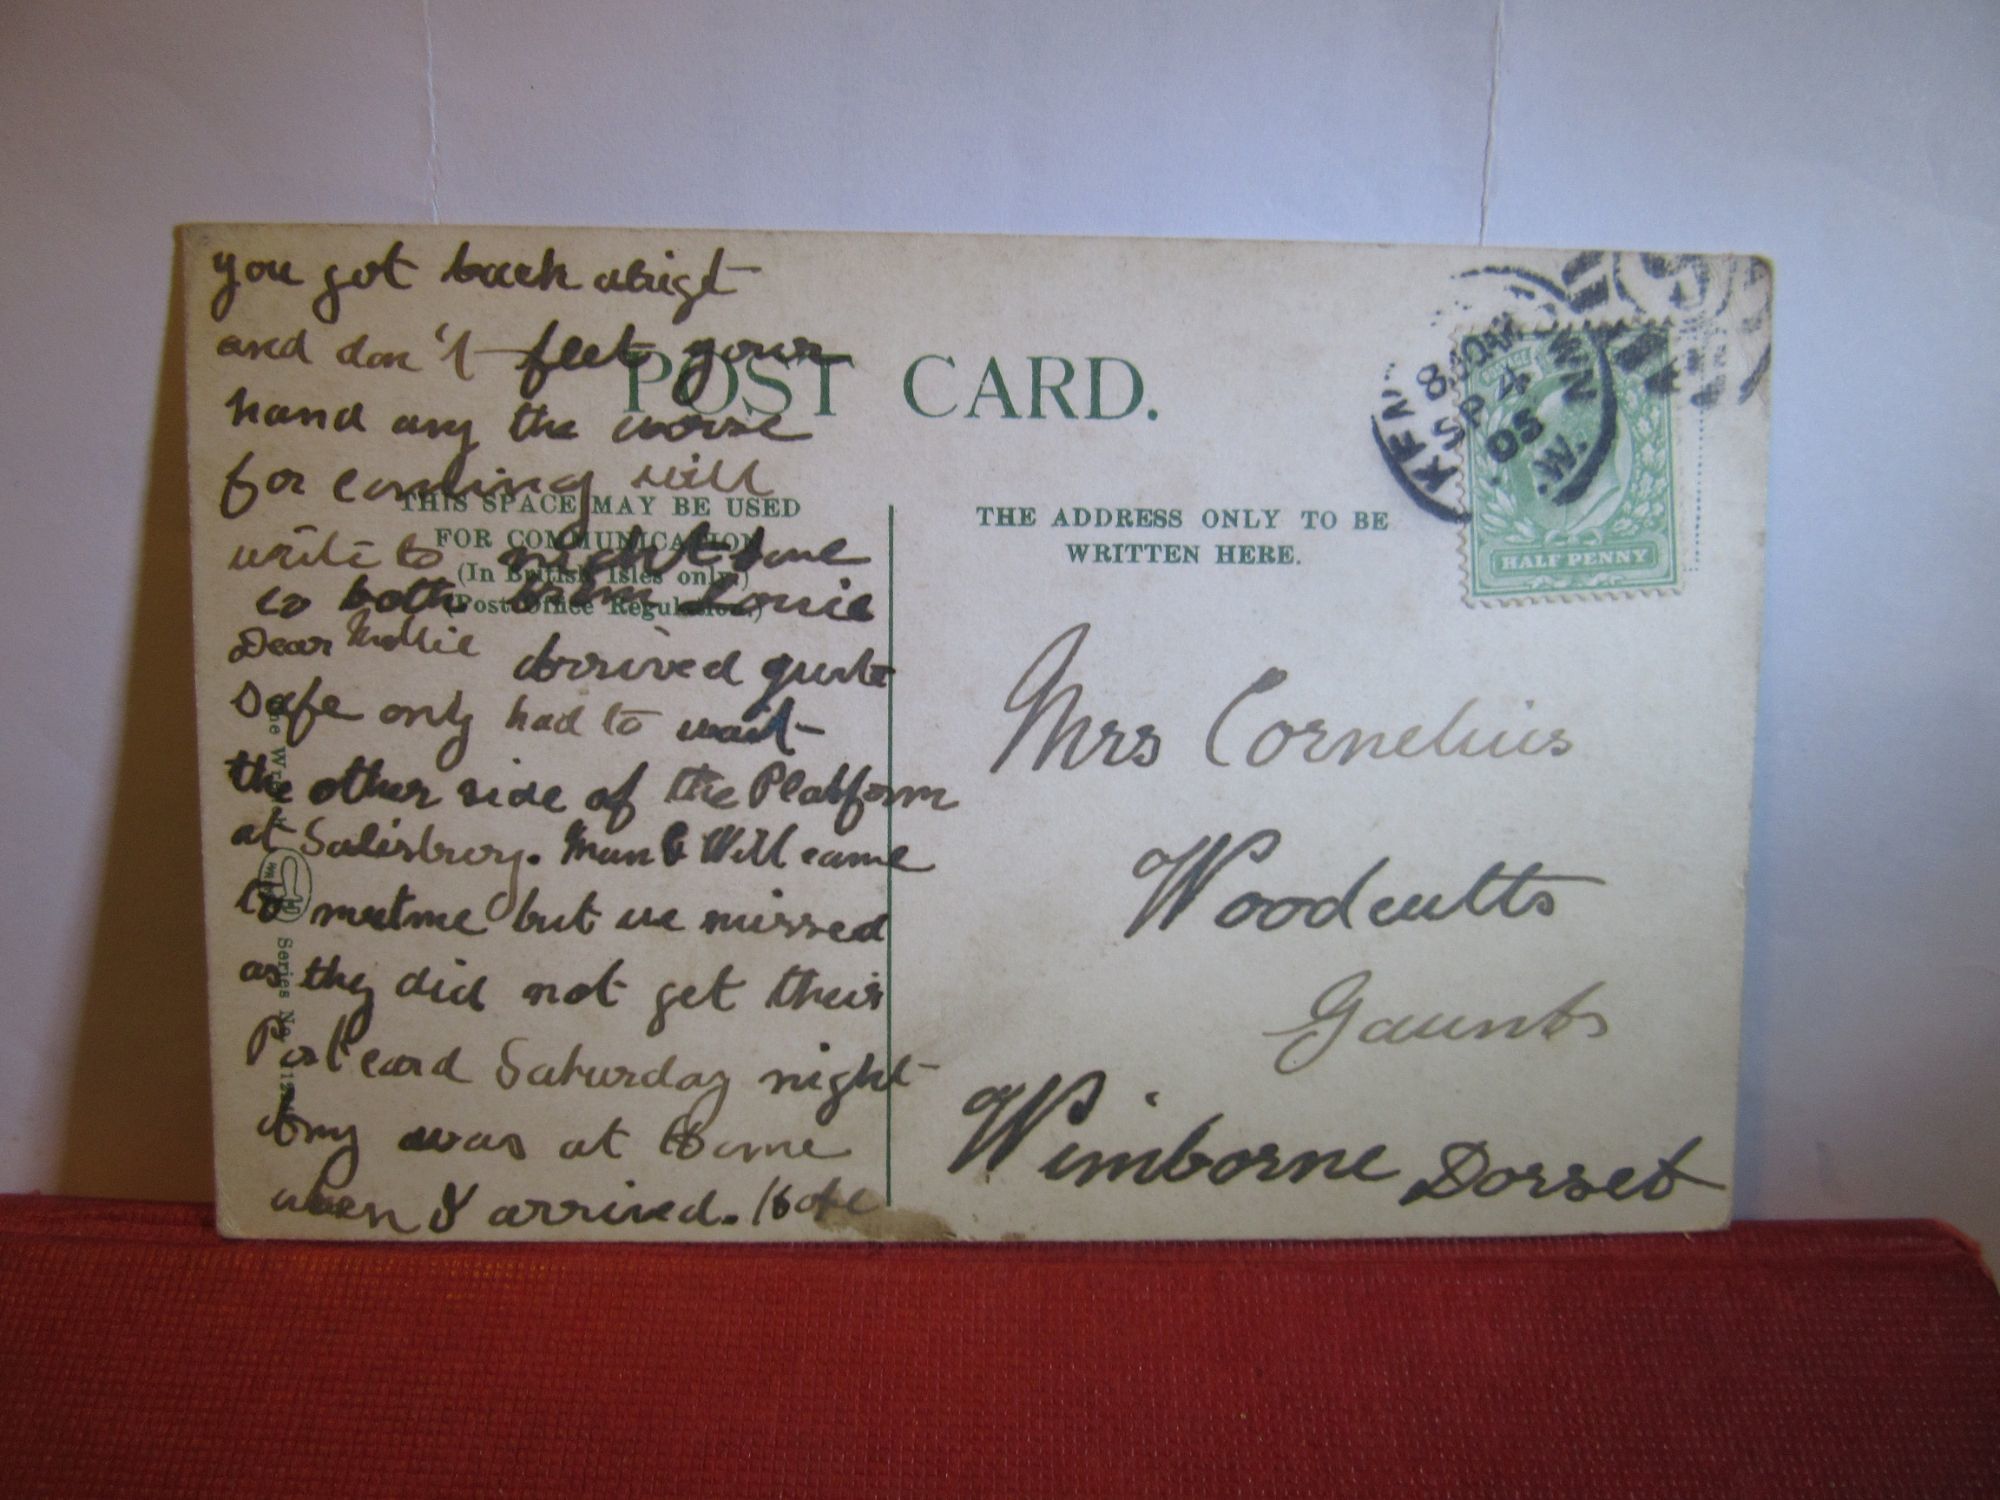 you got back abright
and don't feel your
hand any the worse
for coming will
write to night love
to both from Louie
Dear Mollie Arrived quite
safe only had to wait
the other side of the Platform
at Salisbury. Mum & Will came
to meet me but we missed
as they did not get their
Post card Saturday night
Amy was at Home
when I arrived. Hope
POST CARD.
THIS SPACE MAY BE USED
FOR COMMUNICATION
(In British Isles only.)
(Post Office Regulation.)
The Wrench
Series No.
THE ADDRESS ONLY TO BE
WRITTEN HERE.
POSTAGE
HALF PENNY
8.30 AM
SP 4
05
Mrs Cornelius
Woodcutts
Gaunts
Wimborne Dorset